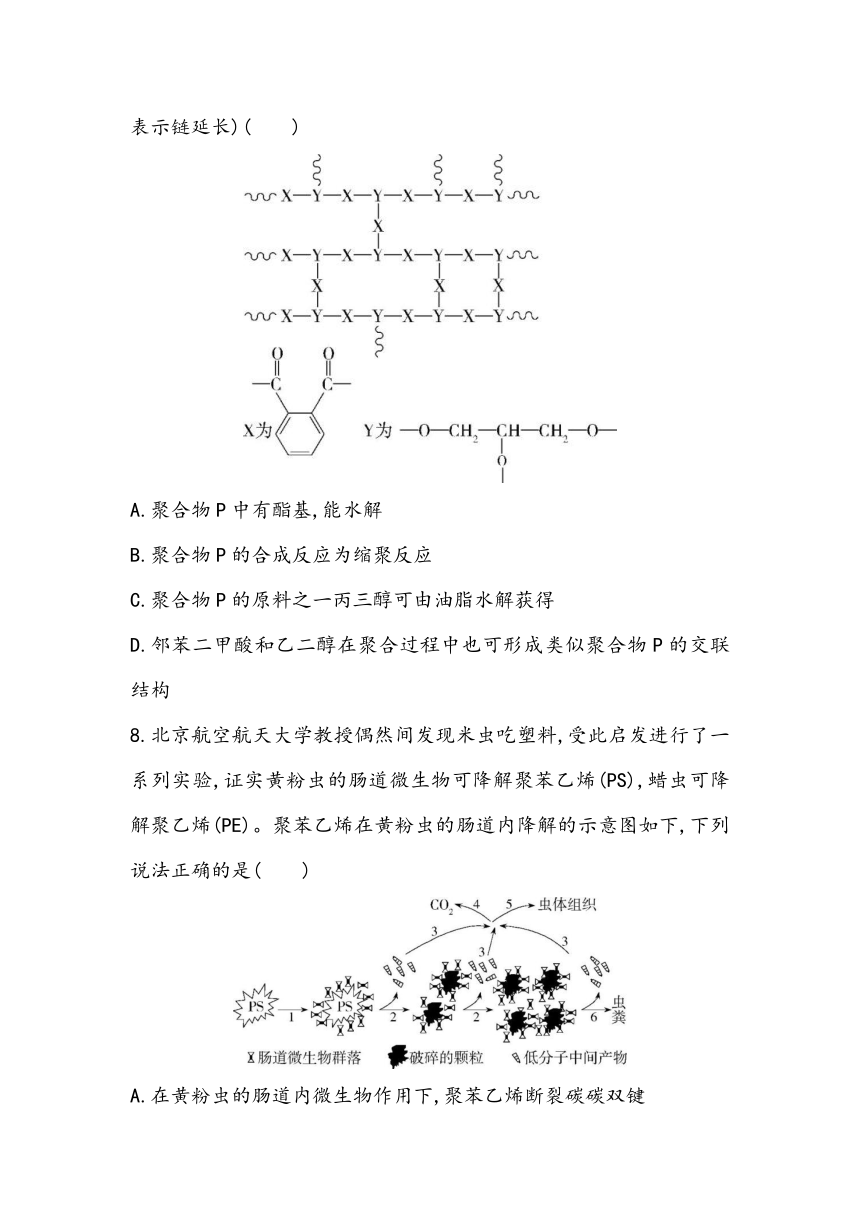 表示链延长)(    )
X—Y—X—Y—X—Y—X—Y
X
X—Y—X—Y—X—Y—X—Y
X X X
X—Y—X—Y—X—Y—X—Y
O O
—C C—
X为 Y为 —O—CH₂—CH—CH₂—O—
O
A.聚合物P中有酯基,能水解
B.聚合物P的合成反应为缩聚反应
C.聚合物P的原料之一丙三醇可由油脂水解获得
D.邻苯二甲酸和乙二醇在聚合过程中也可形成类似聚合物P的交联
结构
8.北京航空航天大学教授偶然间发现米虫吃塑料,受此启发进行了一
系列实验,证实黄粉虫的肠道微生物可降解聚苯乙烯(PS),蜡虫可降
解聚乙烯(PE)。聚苯乙烯在黄粉虫的肠道内降解的示意图如下,下列
说法正确的是(    )
CO₂ 4 5 虫体组织
3 3 3
PS 1 PS 2 2 6 虫粪
肠道微生物群落 破碎的颗粒 低分子中间产物
A.在黄粉虫的肠道内微生物作用下,聚苯乙烯断裂碳碳双键